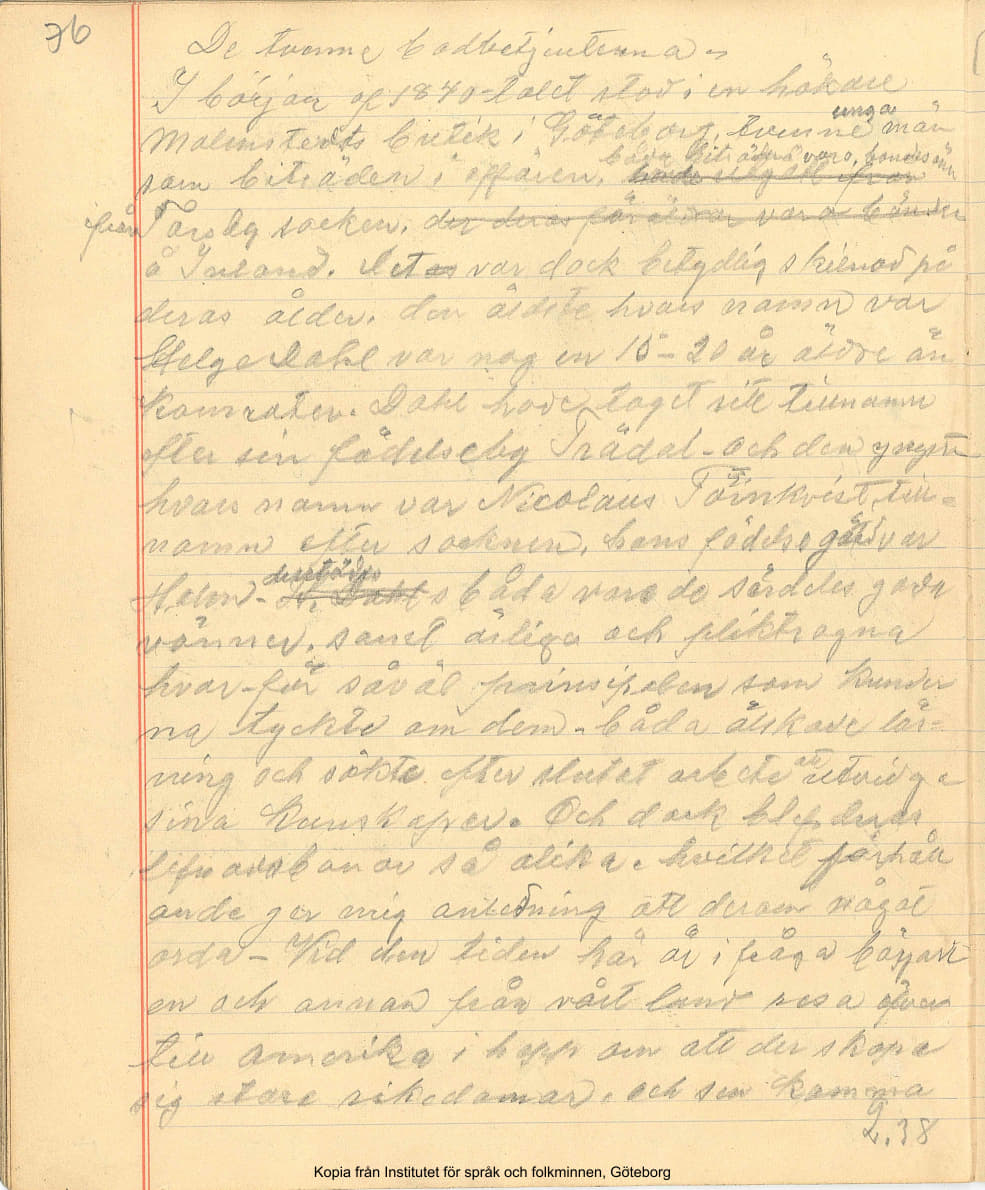 76
De tvenne bodbetjenterna -
I början af 1840-talet stod i en hökare
Malmstedts butik i Göteborg, tvenne unga män
som biträden i affären, båda biträdena voro bondesöner
ifrån Torsby socken, der deras föräldrar voro bönder
å Inland. Det var dock betydlig skilnad på
deras ålder, den äldste hvars namn var
Helge Dahl var nog en 15-20 år äldre än
kamraten. Dahl hade taget sitt tillnamn
efter sin födelseby Trädal - och den yngre
hvars namn var Nicolaus Törnkvist, till-
namn efter socknen, hans födelsegård var
Holm - dessutom båda voro de särdeles goda
vänner, samt ärliga och pliktrogna
hvar-för såväl prinsipalen som kunder
na tyckte om dem - båda älskade lär-
ning och sökte efter slutat arbete att utvidga
sina kunskaper. Och dock blef deras
lefnadsbanor så olika. hvilket förhåll
ande ger mig anledning att derom något
orda - Vid den tiden här är i fråga börjart
en och annan från vårt land resa öfver
till Amerika i hopp om att der skapa
sig stora rikedomar, och sen komma
2.38
Kopia från Institutet för språk och folkminnen, Göteborg